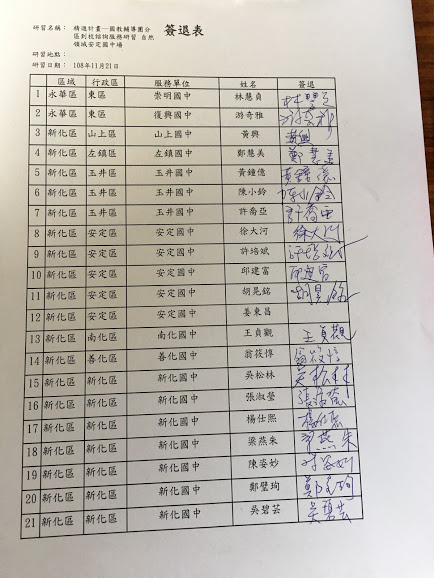 簽退表
研習名稱： 精進計畫－國教輔導團分
區到校諮詢服務研習 自然
領域安定國中場
研習地點：
研習日期： 108年11月21日
區域 行政區 服務單位 姓名 簽退
1 永華區 東區 崇明國中 林慧貞
2 永華區 東區 復興國中 游奇雅
3 新化區 山上區 山上國中 黃興 黃興
4 新化區 左鎮區 左鎮國中 鄭慧美 鄭慧美
5 新化區 玉井區 玉井國中 黃鍾億
6 新化區 玉井區 玉井國中 陳小鈴 陳小鈴
7 新化區 玉井區 玉井國中 許喬亞 許喬亞
8 新化區 安定區 安定國中 徐大河 徐大河
9 新化區 安定區 安定國中 許培斌
10 新化區 安定區 安定國中 邱建富
11 新化區 安定區 安定國中 胡晃銘
12 新化區 安定區 安定國中 姜東昌
13 新化區 南化區 南化國中 王貞觀 王貞觀
14 新化區 善化區 善化國中 翁筱惇
15 新化區 新化區 新化國中 吳松林 吳松林
16 新化區 新化區 新化國中 張淑瑩
17 新化區 新化區 新化國中 楊仕熙
18 新化區 新化區 新化國中 梁燕朱
19 新化區 新化區 新化國中 陳姿妙
20 新化區 新化區 新化國中 鄭璧珣
21 新化區 新化區 新化國中 吳碧芸 吳碧芸